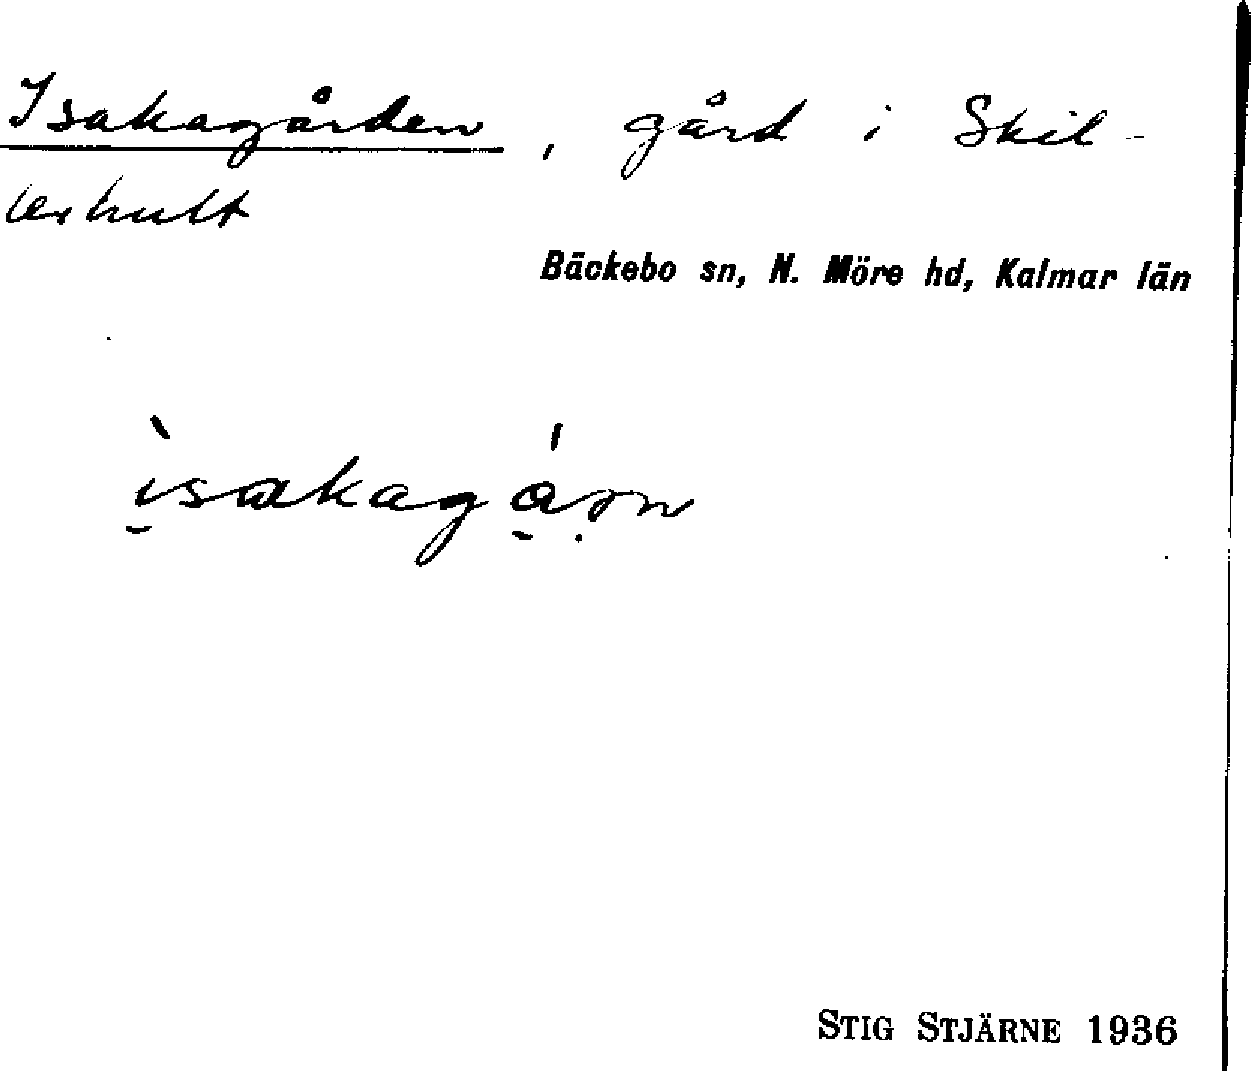 Isakagården, gård i Skil-
lerhult
Bäckebo sn, N. Möre hd, Kalmar län
ìsakagárn
STIG STJÄRNE 1936